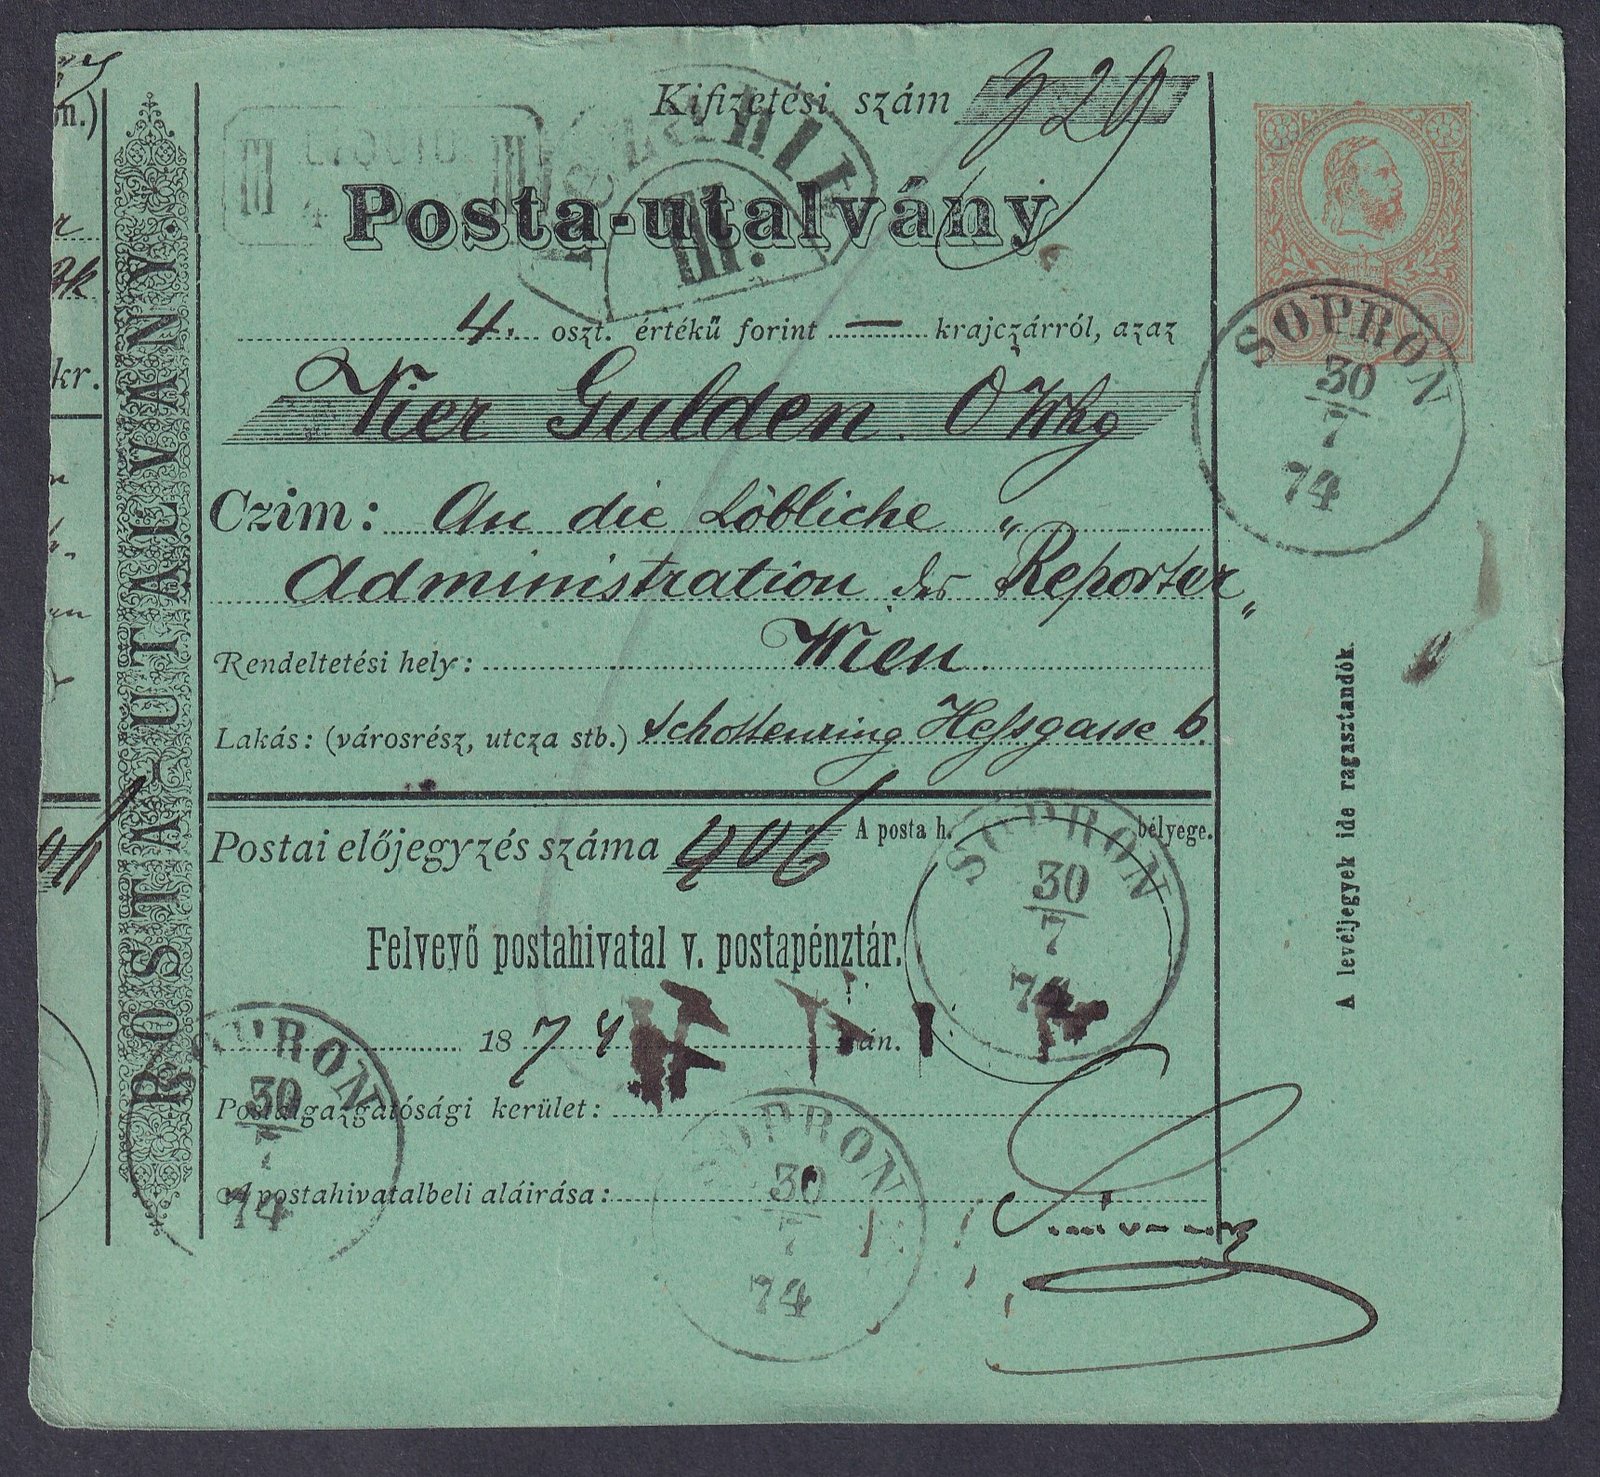 on.)
kr.
POSTA-UTALVÁNY.
Kifizetési szám 929
Posta-utalvány
III.
4. oszt. értékű forint — krajczárról, azaz
Vier Gulden ÖWhg
Czim: An die Löbliche "
Administration des Reporter "
Rendeltetési hely: Wien
Lakás: (városrész, utcza stb.) Schottenring Hessgasse 6.
Postai előjegyzés száma 406
A posta h. bélyege.
Felvevő postahivatal v. postapénztár.
1874 án.
Postaigazgatósági kerület:
A postahivatalbeli aláirása:
SOPRON
30
7
74
SOPRON
30
7
74
SOPRON
30
7
74
SOPRON
30
7
74
A levéljegyek ide ragasztandók.